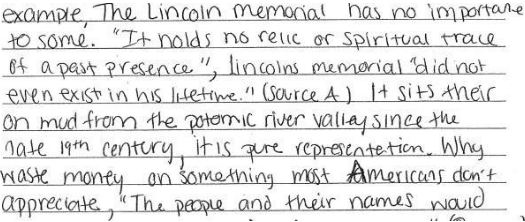 example, The Lincoln memorial has no importane
to some. "It holds no relic or spiritual trace
of a past presence", lincolns memorial "did not
even exist in his lifetime." (Source A) It sits their
on mud from the potomic river valley since the
late 19th century, it is pure representetion. Why
waste money on something most Americans don't
appreciate, "The people and their names would